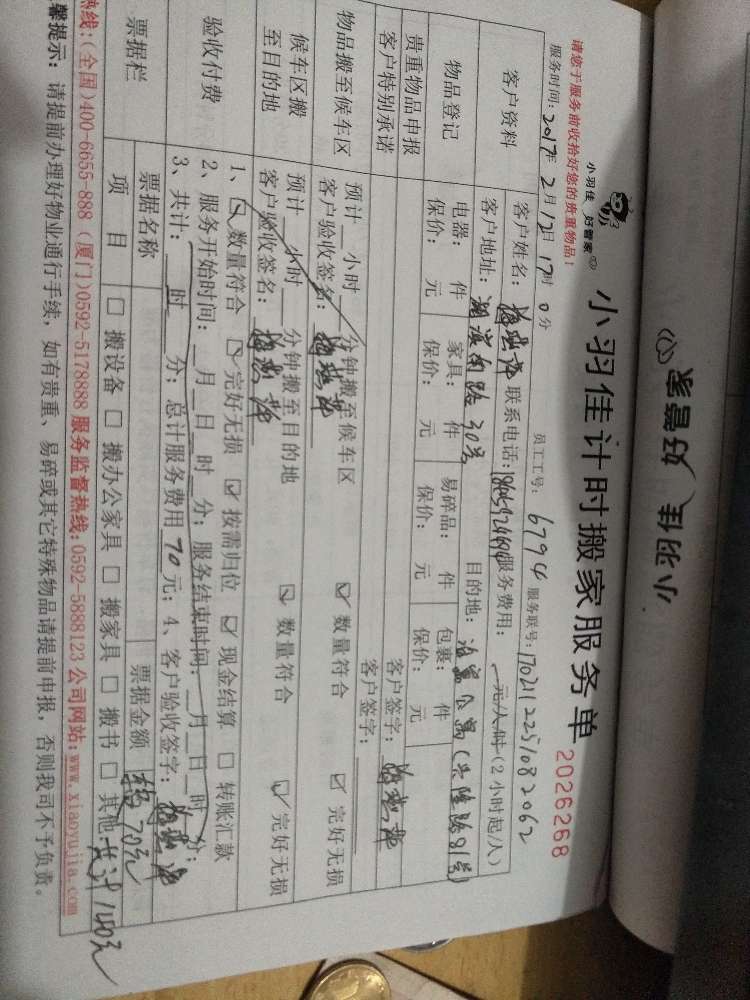 小羽佳 好管家
小羽佳 好管家
请您于服务前收拾好您的贵重物品！
小羽佳计时搬家服务单
2026268
服务时间：2017年2月12日17时0分 员工工号：6794 服务联号：1702112251082062
客户资料
客户姓名： 联系电话： 服务费用： 元/人时(2小时起/人)
客户地址：湖滨南路30号 目的地： 公寓(兴隆路81号)
物品登记
电器： 件 家具： 件 易碎品： 件 包裹： 件
保价： 元 保价： 元 保价： 元 保价： 元
贵重物品申报
客户签字：
客户特别承诺
客户签字：
物品搬至候车区
预计 小时 分钟搬至候车区 ☑ 数量符合 ☑ 完好无损
客户验收签名：
候车区搬至目的地
预计 小时 分钟搬至目的地 ☑ 数量符合 ☑ 完好无损
客户验收签名：
验收付费
1、☑ 数量符合 ☑ 完好无损 ☑ 按需归位 ☑ 现金结算 □ 转账汇款
2、服务开始时间： 月 日 时 分；服务结束时间： 月 日 时 分；
3、共计： 时 分；总计服务费用70元；4、客户验收签字：
票据栏
票据名称 票据金额 70元
项目 □ 搬设备 □ 搬办公家具 □ 搬家具 □ 搬书 □ 其他 共计140元
热线:(全国)400-6655-888 (厦门)0592-5178888 服务监督热线:0592-5888123 公司网站:www.xiaoyujia.com
馨提示：请提前办理好物业通行手续，如有贵重、易碎或其它特殊物品请提前申报，否则我司不予负责。